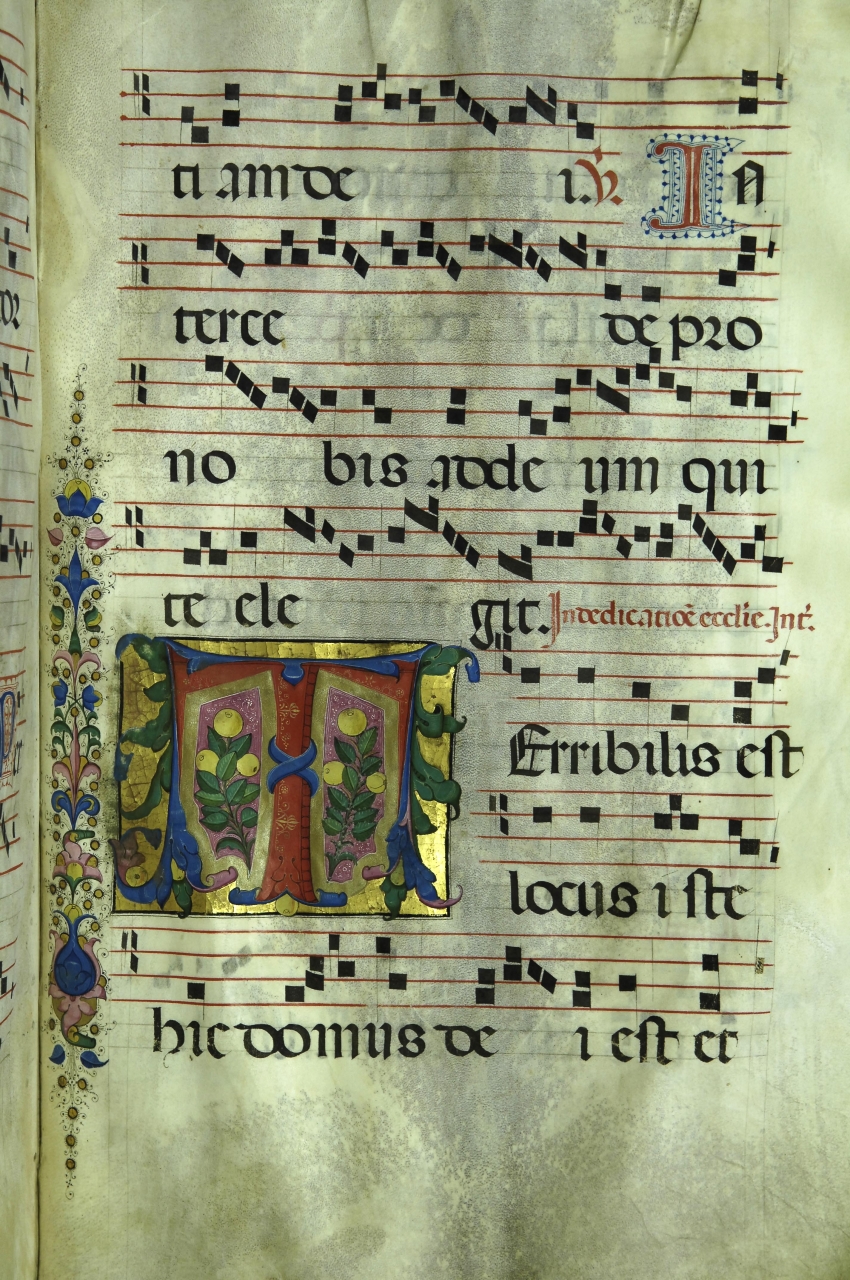 ti am de i. ℣. In
terce de pro
no bis ad de um qui
te ele git. In dedicatiōe ecclīe. Int̄.
Terribilis est
locus i ste
hic domus de i est et